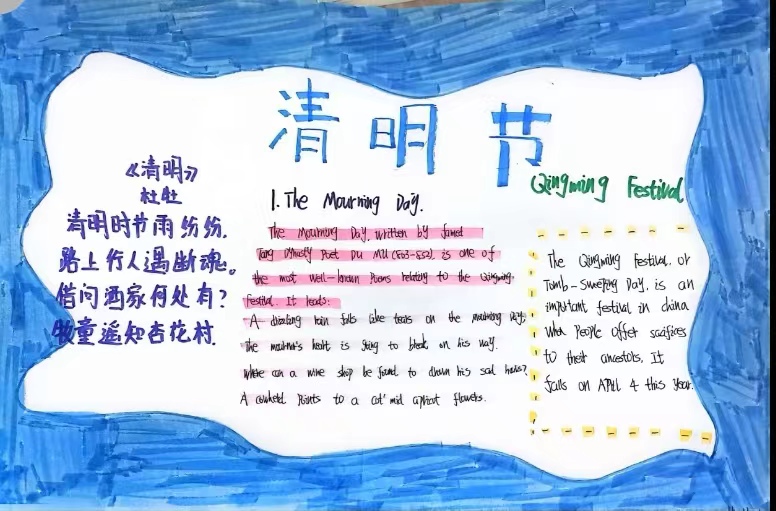 清明节
Qingming Festival
《清明》
杜牡
清明时节雨纷纷.
路上行人遇断魂。
借问酒家何处有?
牧童遥知杏花村.
1. The Mourning Day.
The Mourning Day, written by famed
Tang Dynasty Poet DU MU (803-852) is one of
the most well-known Poems relating to the Qingming.
Festival. It leads:
A drizzling rain falls like tears on the mourning Day;
The mourner's heart is going to bleak on his way.
Where can a wine shop be found to drown his sad
A cowherd Points to a cot' mid apricot flowers.
The Qingming Festival, or
Tomb-Sweeping Day, is an
important festival in china
when People offer sacrifices
to their ancestors. It
falls on APril 4 this year.